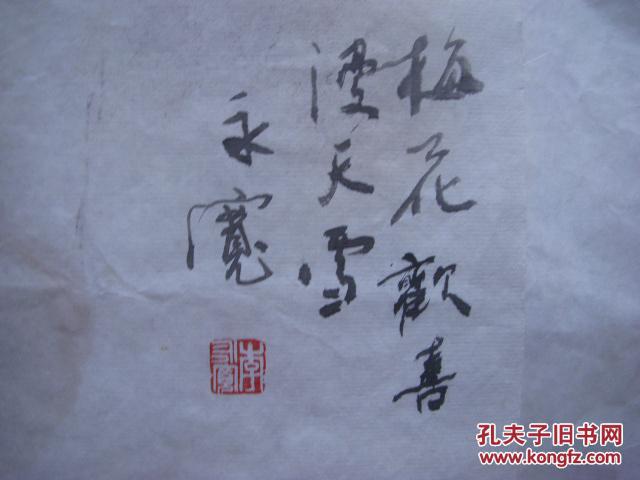 梅花歡喜
漫天雪
永寬
孔夫子旧书网
www.kongfz.com